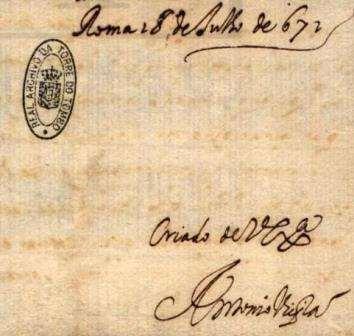 Roma 18 de Julho de 672
REAL ARCHIVO DA TORRE DO TOMBO
Criado de V Exª
Antonio Vieira